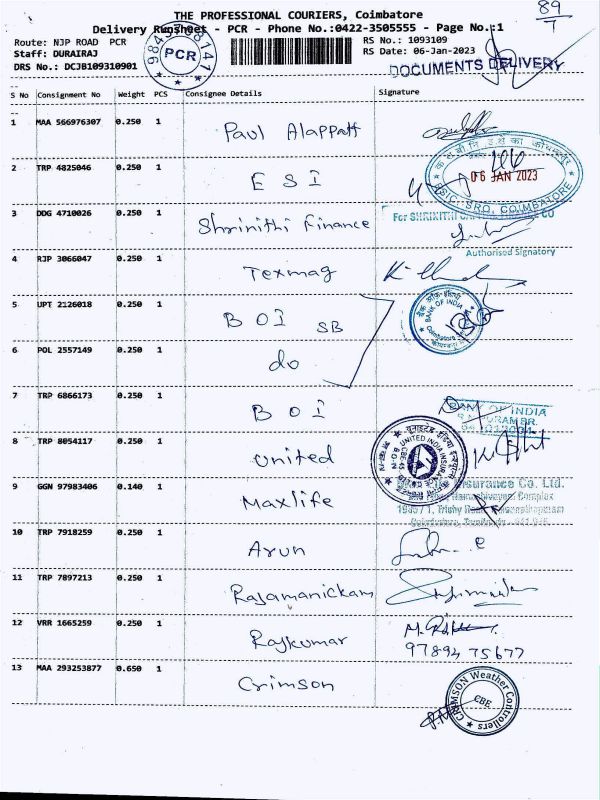 THE PROFESSIONAL COURIERS, Coimbatore
89
Delivery Runsheet - PCR - Phone No.:0422-3505555 - Page No.:1
T
Route: NJP ROAD PCR
RS No.: 1093109
Staff: DURAIRAJ
RS Date: 06-Jan-2023
DRS No.: DCJB109310901
PCR
DOCUMENTS DELIVERY
S No Consignment No Weight PCS Consignee Details Signature
1 MAA 566976307 0.250 1 Paul Alappatt
2 TRP 4825046 0.250 1 ESI
06 JAN 2023
ESIC, SRO, COIMBATORE
3 DDG 4710026 0.250 1 Shrinithi Finance
For SHRINITHI
Authorised Signatory
4 RJP 3066047 0.250 1 Texmag
5 UPT 2126018 0.250 1 BOI SB
BANK OF INDIA
6 POL 2557149 0.250 1 do
7 TRP 6866173 0.250 1 BOI
BANK OF INDIA
8 TRP 8054117 0.250 1 United
UNITED INDIA INSURANCE
9 GGN 97983406 0.140 1 Maxlife
Insurance Co. Ltd.
Complex
10 TRP 7918259 0.250 1 Arun
11 TRP 7897213 0.250 1 Rajamanickam
12 VRR 1665259 0.250 1 Rajkumar
97894 75677
13 MAA 293253877 0.650 1 Crimson
CRIMSON Weather Controllers
CBE